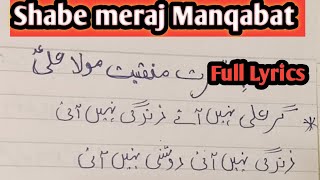 Shabe meraj Manqabat
منقبت مولا علیؑ
Full Lyrics
* گر علی نہیں آتے زندگی نہیں آتی
زندگی نہیں آتی روشنی نہیں آتی